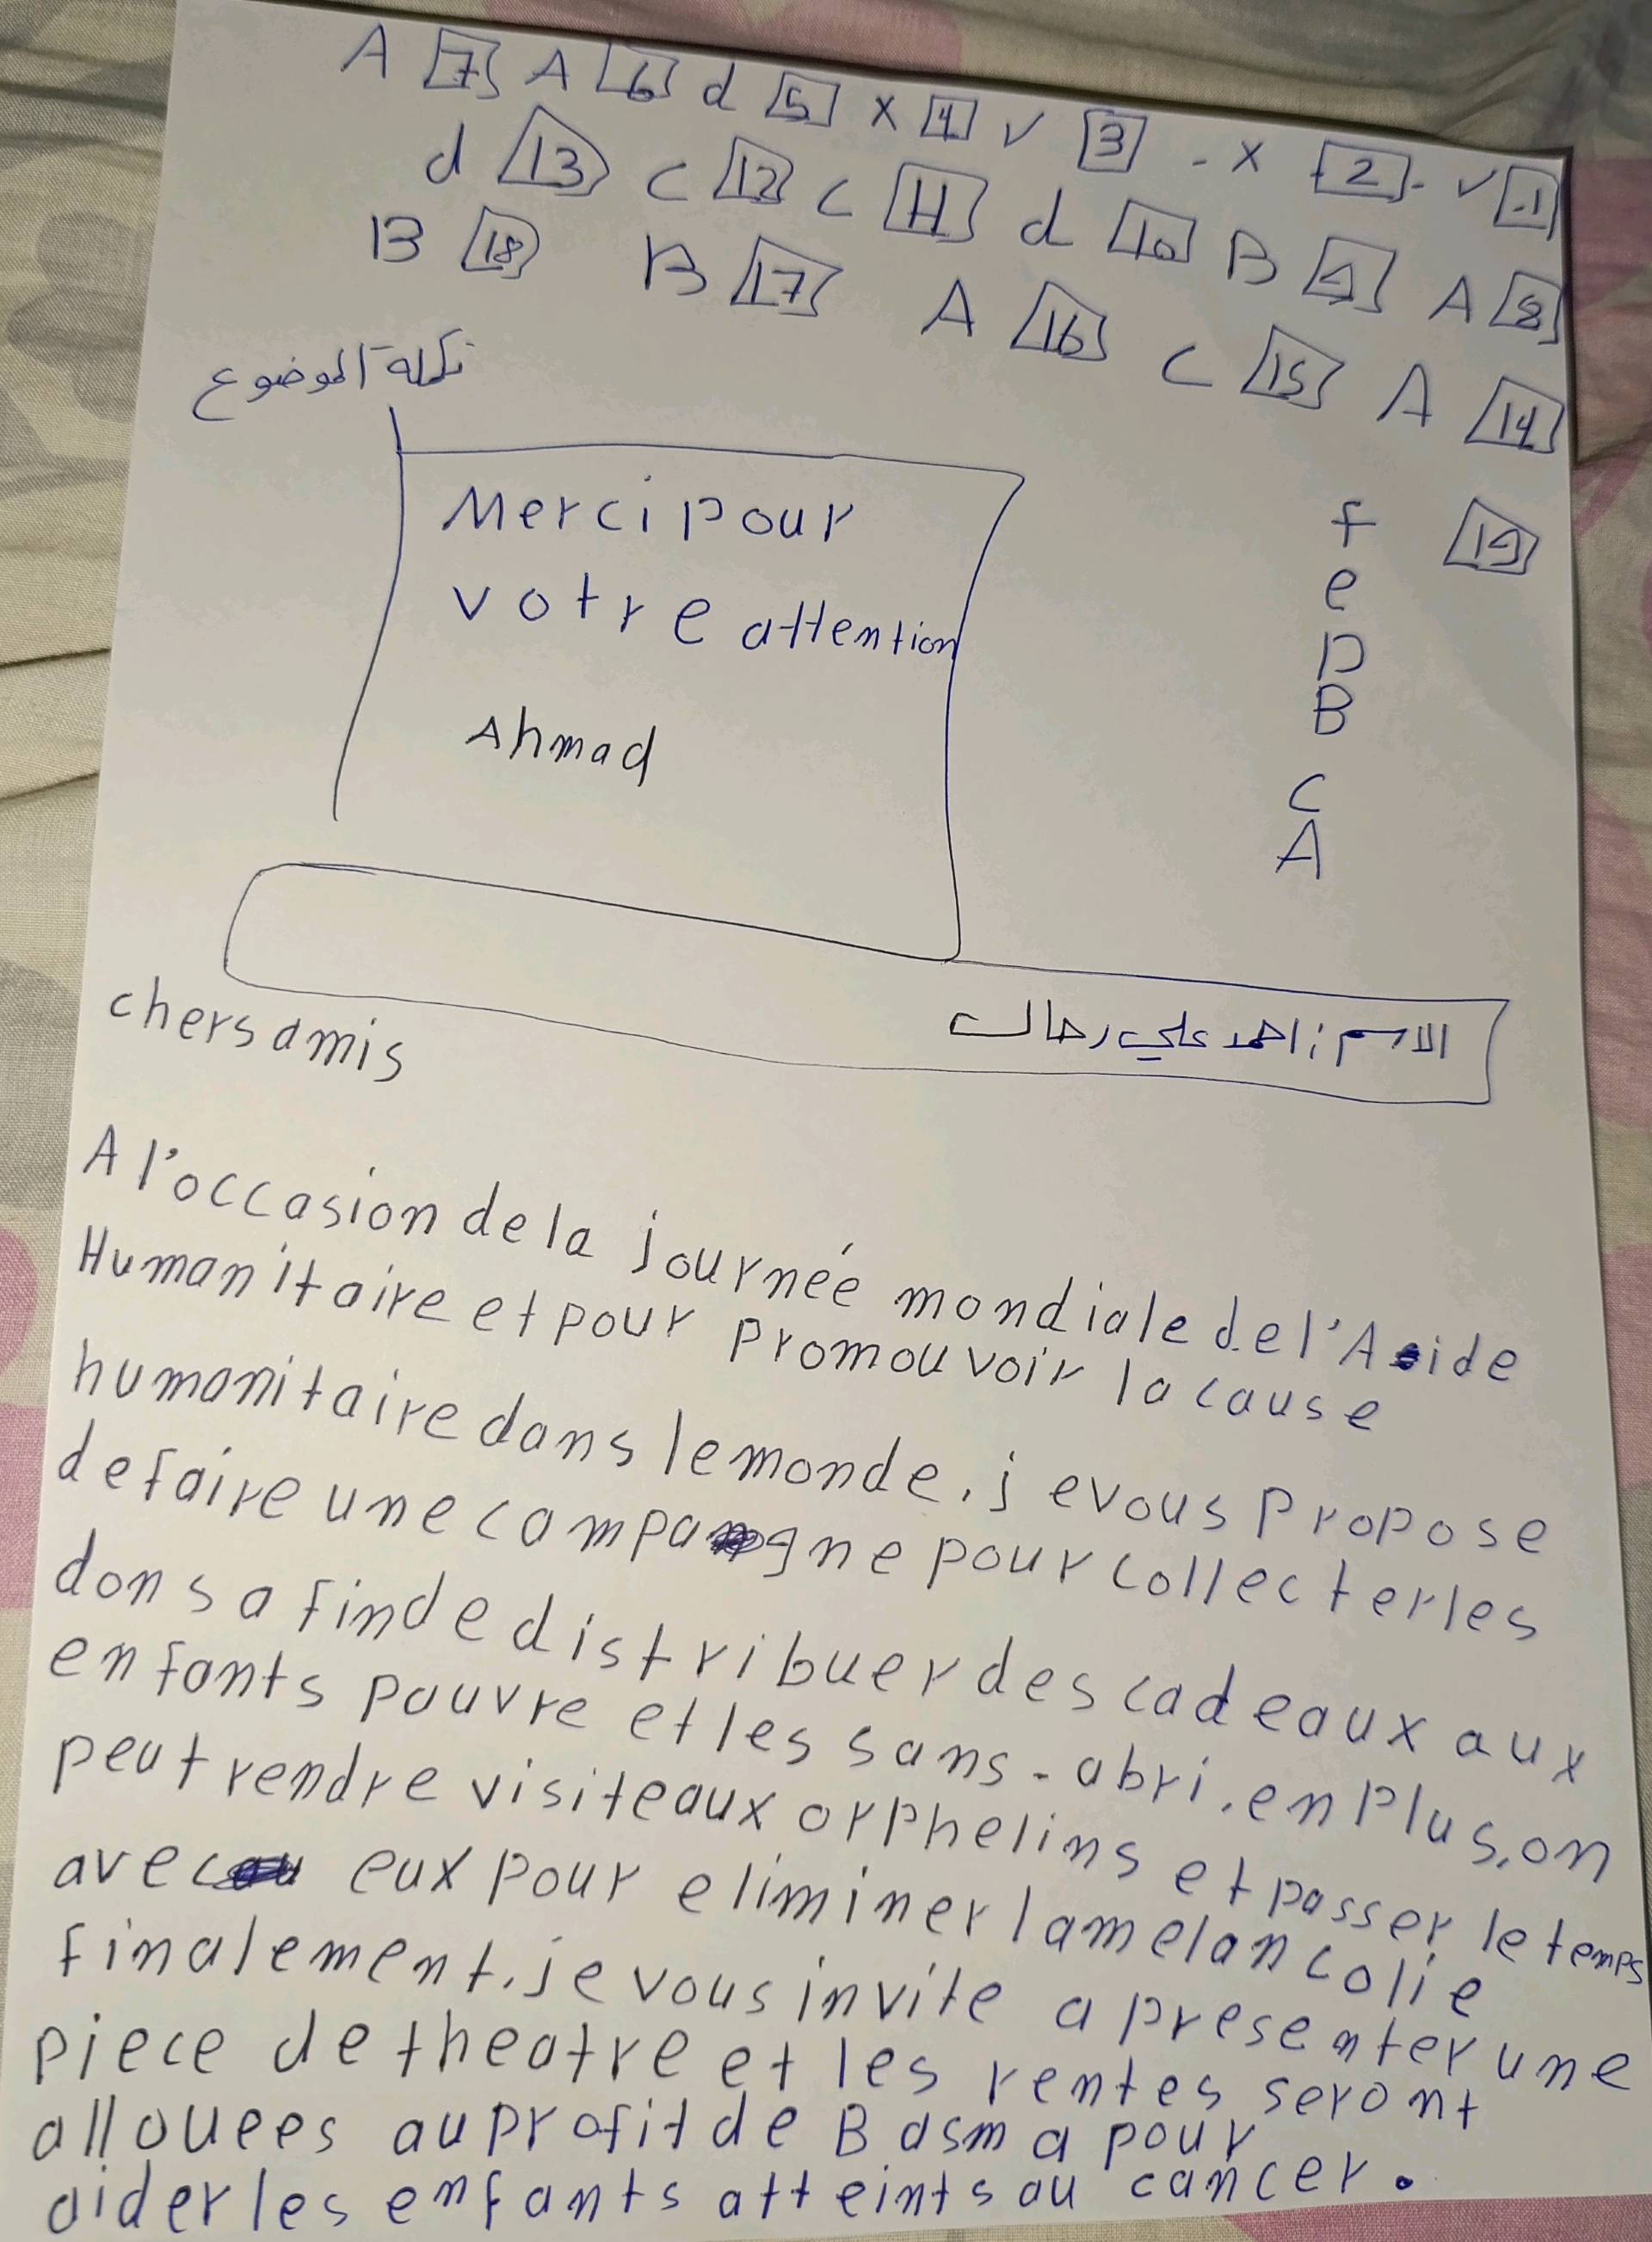 A 7 A 6 d 5 x 4 ✓ 3 - x 2 - ✓ 1
d 13 c 12 c 11 d 10 B 9 A 8
B 18 B 17 A 16 c 15 A 14
تكملة الموضوع
Merci pour
votre attention
Ahmad
f 19
e
D
B
C
A
الاسم: احمد علي رحال
chers amis
A l'occasion de la journée mondiale de l'Aide
Humanitaire et pour promouvoir la cause
humanitaire dans le monde, je vous propose
de faire une campagne pour collecter les
dons a fin de distribuer des cadeaux aux
enfants pauvre et les sans-abri. en plus, on
peut rendre visite aux orphelins et passer le temps
avec eux pour eliminer la melancolie
finalement, je vous invite a presenter une
piece de theatre et les rentes seront
allouees au profit de Basma pour
aider les enfants atteints au cancer.